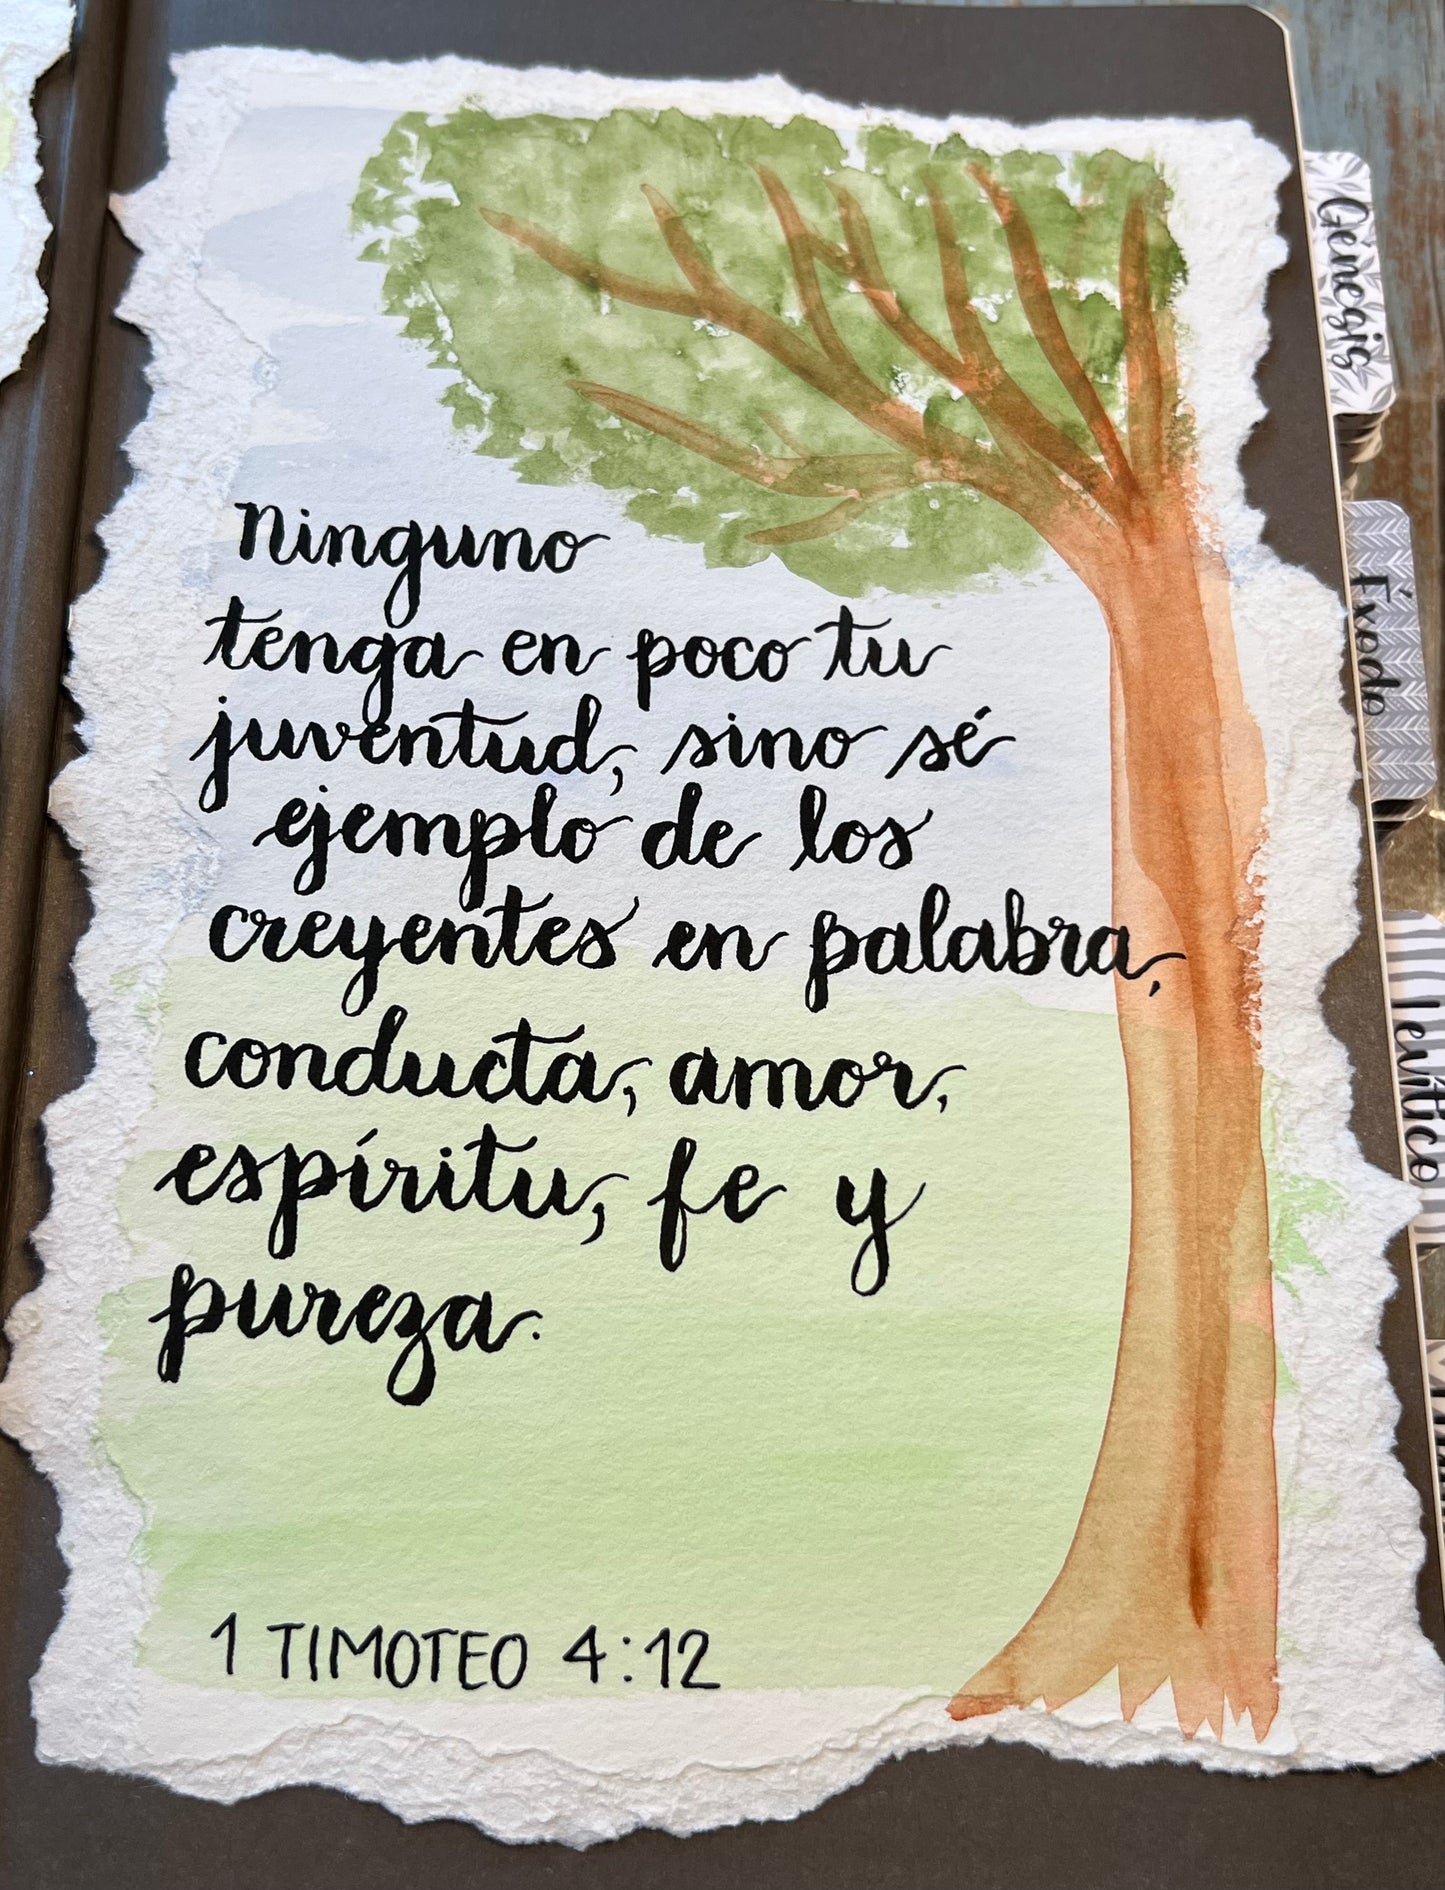 Ninguno
tenga en poco tu
juventud, sino sé
ejemplo de los
creyentes en palabra,
conducta, amor,
espíritu, fe y
pureza.
1 TIMOTEO 4:12
Génesis
Éxodo
Levítico